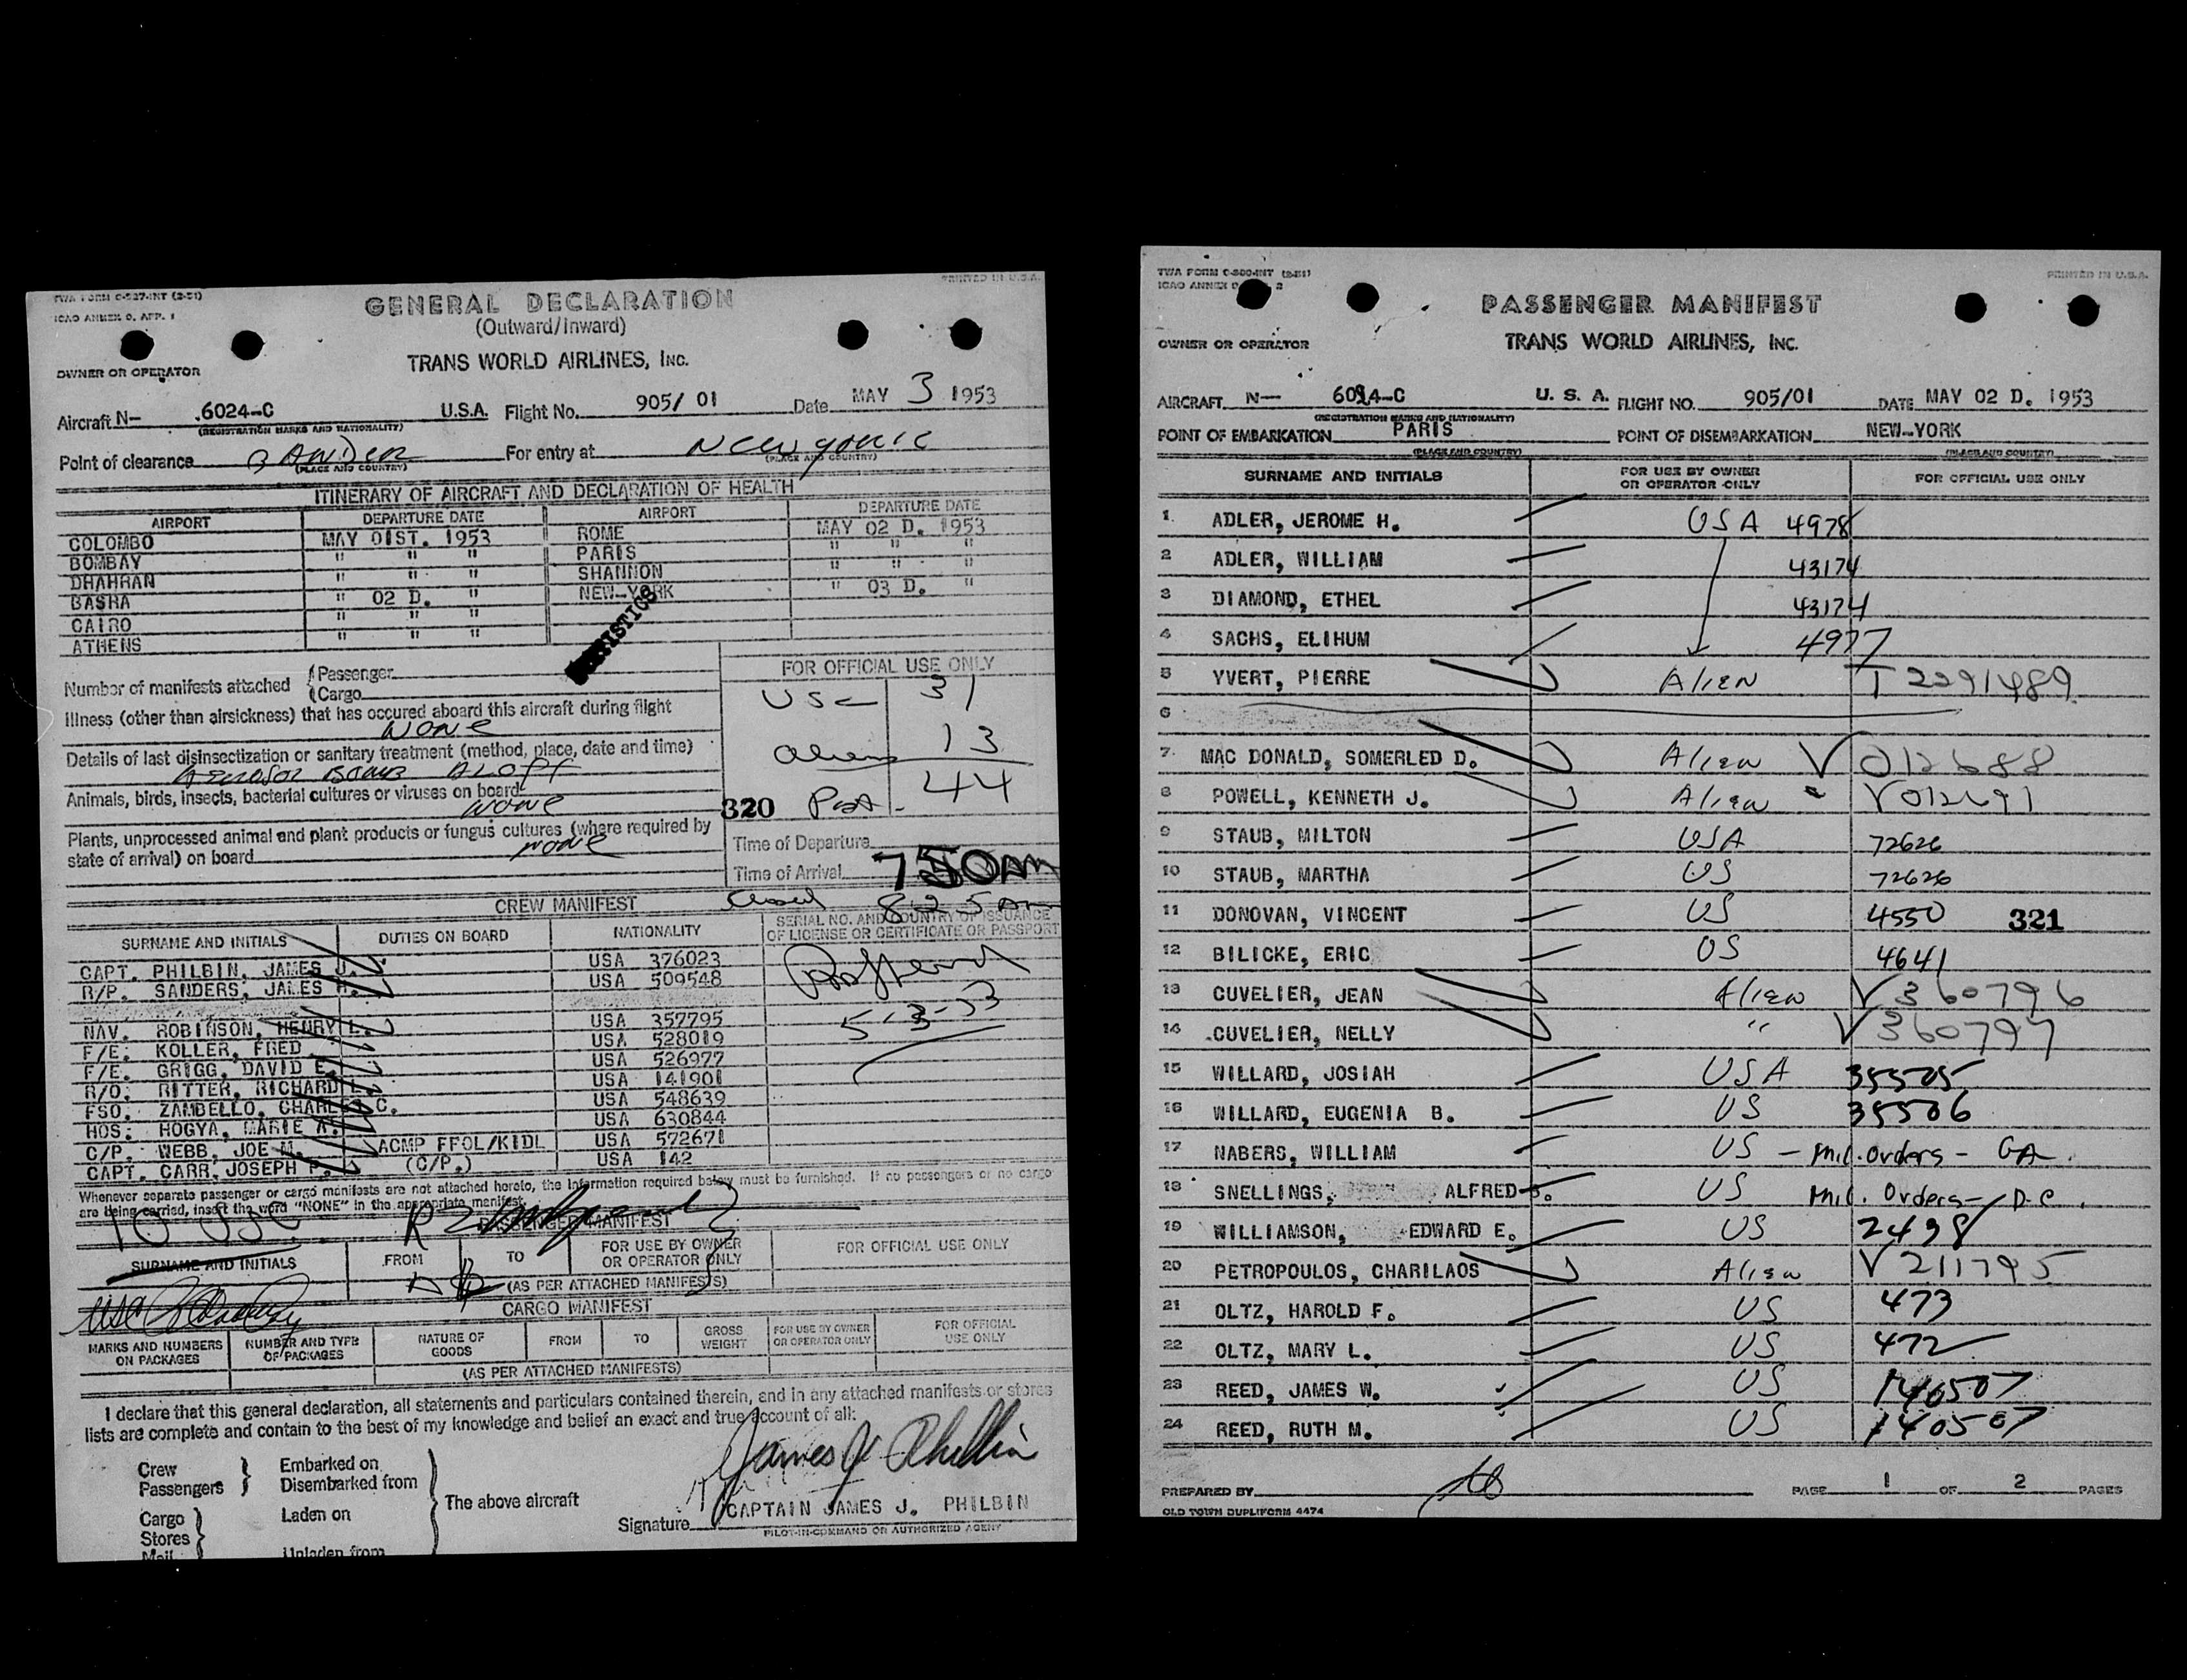 TWA FORM C-527-INT (2-51)
PRINTED IN U.S.A.
ICAO ANNEX 9, APP. 1
GENERAL DECLARATION
(Outward/Inward)
TRANS WORLD AIRLINES, INC.
OWNER OR OPERATOR
Aircraft N- 6024-C U.S.A. Flight No. 905/ 01 Date MAY 3 1953
(REGISTRATION MARKS AND NATIONALITY)
Point of clearance For entry at New York
(PLACE AND COUNTRY) (PLACE AND COUNTRY)
ITINERARY OF AIRCRAFT AND DECLARATION OF HEALTH
AIRPORT DEPARTURE DATE AIRPORT DEPARTURE DATE
COLOMBO MAY 01ST. 1953 ROME MAY 02 D. 1953
BOMBAY " " " PARIS " " "
DHAHRAN " " " SHANNON " " "
BASRA " 02 D. " NEW-YORK " 03 D. "
CAIRO " " "
ATHENS " " "
STATISTICS
Number of manifests attached { Passenger
{ Cargo
Illness (other than airsickness) that has occured aboard this aircraft during flight
None
Details of last disinsectization or sanitary treatment (method, place, date and time)
Aerosol Bomb Aloft
Animals, birds, insects, bacterial cultures or viruses on board
None
Plants, unprocessed animal and plant products or fungus cultures (where required by
state of arrival) on board None
FOR OFFICIAL USE ONLY
USC 31
Aliens 13
320 44
Time of Departure
Time of Arrival 750AM
Closed 825AM
CREW MANIFEST
SURNAME AND INITIALS DUTIES ON BOARD NATIONALITY SERIAL NO. AND COUNTRY OF ISSUANCE
OF LICENSE OR CERTIFICATE OR PASSPORT
CAPT. PHILBIN, JAMES J. USA 376023
R/P. SANDERS, JAMES H. USA 509548
NAV. ROBINSON, HENRY L. USA 357795
F/E. KOLLER, FRED USA 528019
F/E. GRIGG, DAVID E. USA 526977
R/O. RITTER, RICHARD L. USA 141901
FSO. ZAMBELLO, CHARLES C. USA 548639
HOS. HOGYA, MARIE A. USA 630844
C/P. WEBB, JOE M. ACMP FFOL/KIDL USA 572671
CAPT. CARR, JOSEPH P. (C/P.) USA 142
5-3-53
Whenever separate passenger or cargo manifests are not attached hereto, the information required below must be furnished. If no passengers or no cargo
are being carried, insert the word "NONE" in the appropriate manifest.
10 USC
PASSENGER MANIFEST
SURNAME AND INITIALS FROM TO FOR USE BY OWNER
OR OPERATOR ONLY FOR OFFICIAL USE ONLY
(AS PER ATTACHED MANIFESTS)
CARGO MANIFEST
MARKS AND NUMBERS
ON PACKAGES NUMBER AND TYPE
OF PACKAGES NATURE OF
GOODS FROM TO GROSS
WEIGHT FOR USE BY OWNER
OR OPERATOR ONLY FOR OFFICIAL
USE ONLY
(AS PER ATTACHED MANIFESTS)
I declare that this general declaration, all statements and particulars contained therein, and in any attached manifests or stores
lists are complete and contain to the best of my knowledge and belief an exact and true account of all:
Crew
Passengers } Embarked on
Disembarked from
Cargo
Stores
Mail } Laden on
Unladen from
The above aircraft
James J Philbin
Signature CAPTAIN JAMES J. PHILBIN
PILOT-IN-COMMAND OR AUTHORIZED AGENT
TWA FORM C-500-INT (2-51)
PRINTED IN U.S.A.
ICAO ANNEX 9, 2
PASSENGER MANIFEST
OWNER OR OPERATOR
TRANS WORLD AIRLINES, INC.
AIRCRAFT N- 6024-C U. S. A. FLIGHT NO. 905/01 DATE MAY 02 D. 1953
(REGISTRATION MARKS AND NATIONALITY)
POINT OF EMBARKATION PARIS POINT OF DISEMBARKATION NEW-YORK
(PLACE AND COUNTRY) (PLACE AND COUNTRY)
SURNAME AND INITIALS FOR USE BY OWNER
OR OPERATOR ONLY FOR OFFICIAL USE ONLY
1. ADLER, JEROME H. USA 4978
2 ADLER, WILLIAM 43174
3 DIAMOND, ETHEL 43174
4 SACHS, ELIHUM 4977
5 YVERT, PIERRE Alien T 2291489
6
7. MAC DONALD, SOMERLED D. Alien V 012688
8 POWELL, KENNETH J. Alien V012691
9 STAUB, MILTON USA 72626
10 STAUB, MARTHA US 72626
11 DONOVAN, VINCENT US 4550 321
12 BILICKE, ERIC US 4641
13 CUVELIER, JEAN Alien V 360796
14 CUVELIER, NELLY " V 360797
15 WILLARD, JOSIAH USA 35505
16 WILLARD, EUGENIA B. US 35506
17 NABERS, WILLIAM US - Mil. Orders - GA.
18 SNELLINGS, ALFRED B. US Mil. Orders - D.C.
19 WILLIAMSON, EDWARD E. US 2498
20 PETROPOULOS, CHARILAOS Alien V 211795
21 OLTZ, HAROLD F. US 473
22 OLTZ, MARY L. US 472
23 REED, JAMES W. US 140507
24 REED, RUTH M. US 140507
PREPARED BY PAGE 1 OF 2 PAGES
OLD TOWN DUPLIFORM 4474